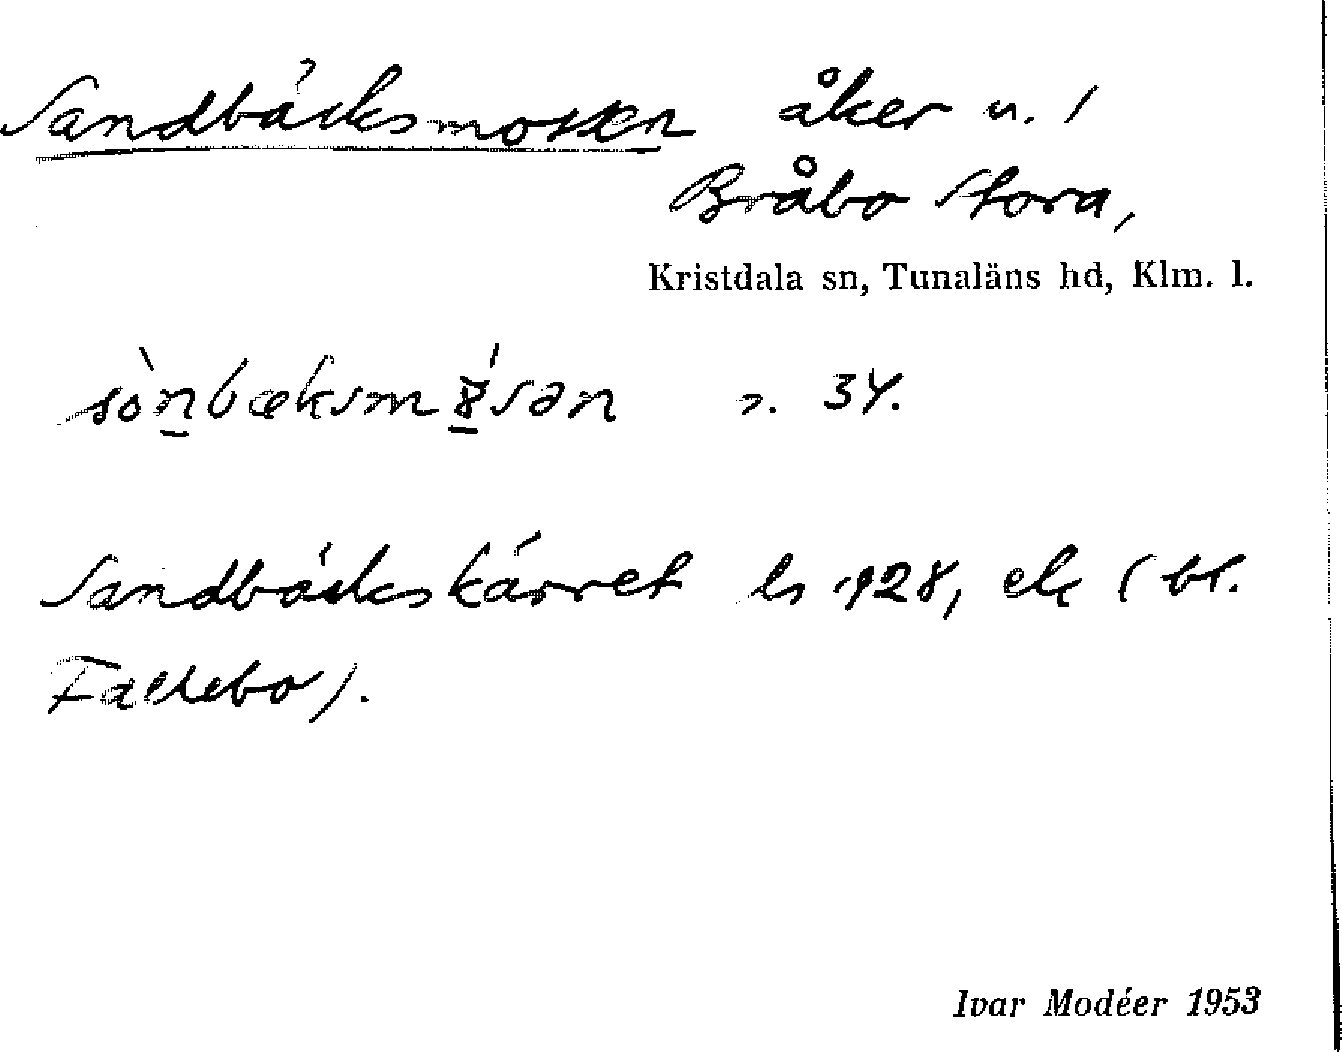 Sandbäcksmossen åker u. /
Bråbo Stora,
Kristdala sn, Tunaläns hd, Klm. l.
34.
Sandbäckskärret ls 1928, (bl.
Fallebo).
Ivar Modéer 1953